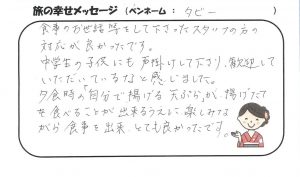 旅の幸せメッセージ（ペンネーム ： タビー ）
食事のお世話等をして下さったスタッフの方の
対応が良かったです。
中学生の子供にも声掛けして下さり、歓迎して
いただいているなと感じました。
夕食時の「自分で揚げる天ぷら」が、揚げたて
を食べることが出来るうえに、楽しみな
がら食事を出来、とても良かったです。